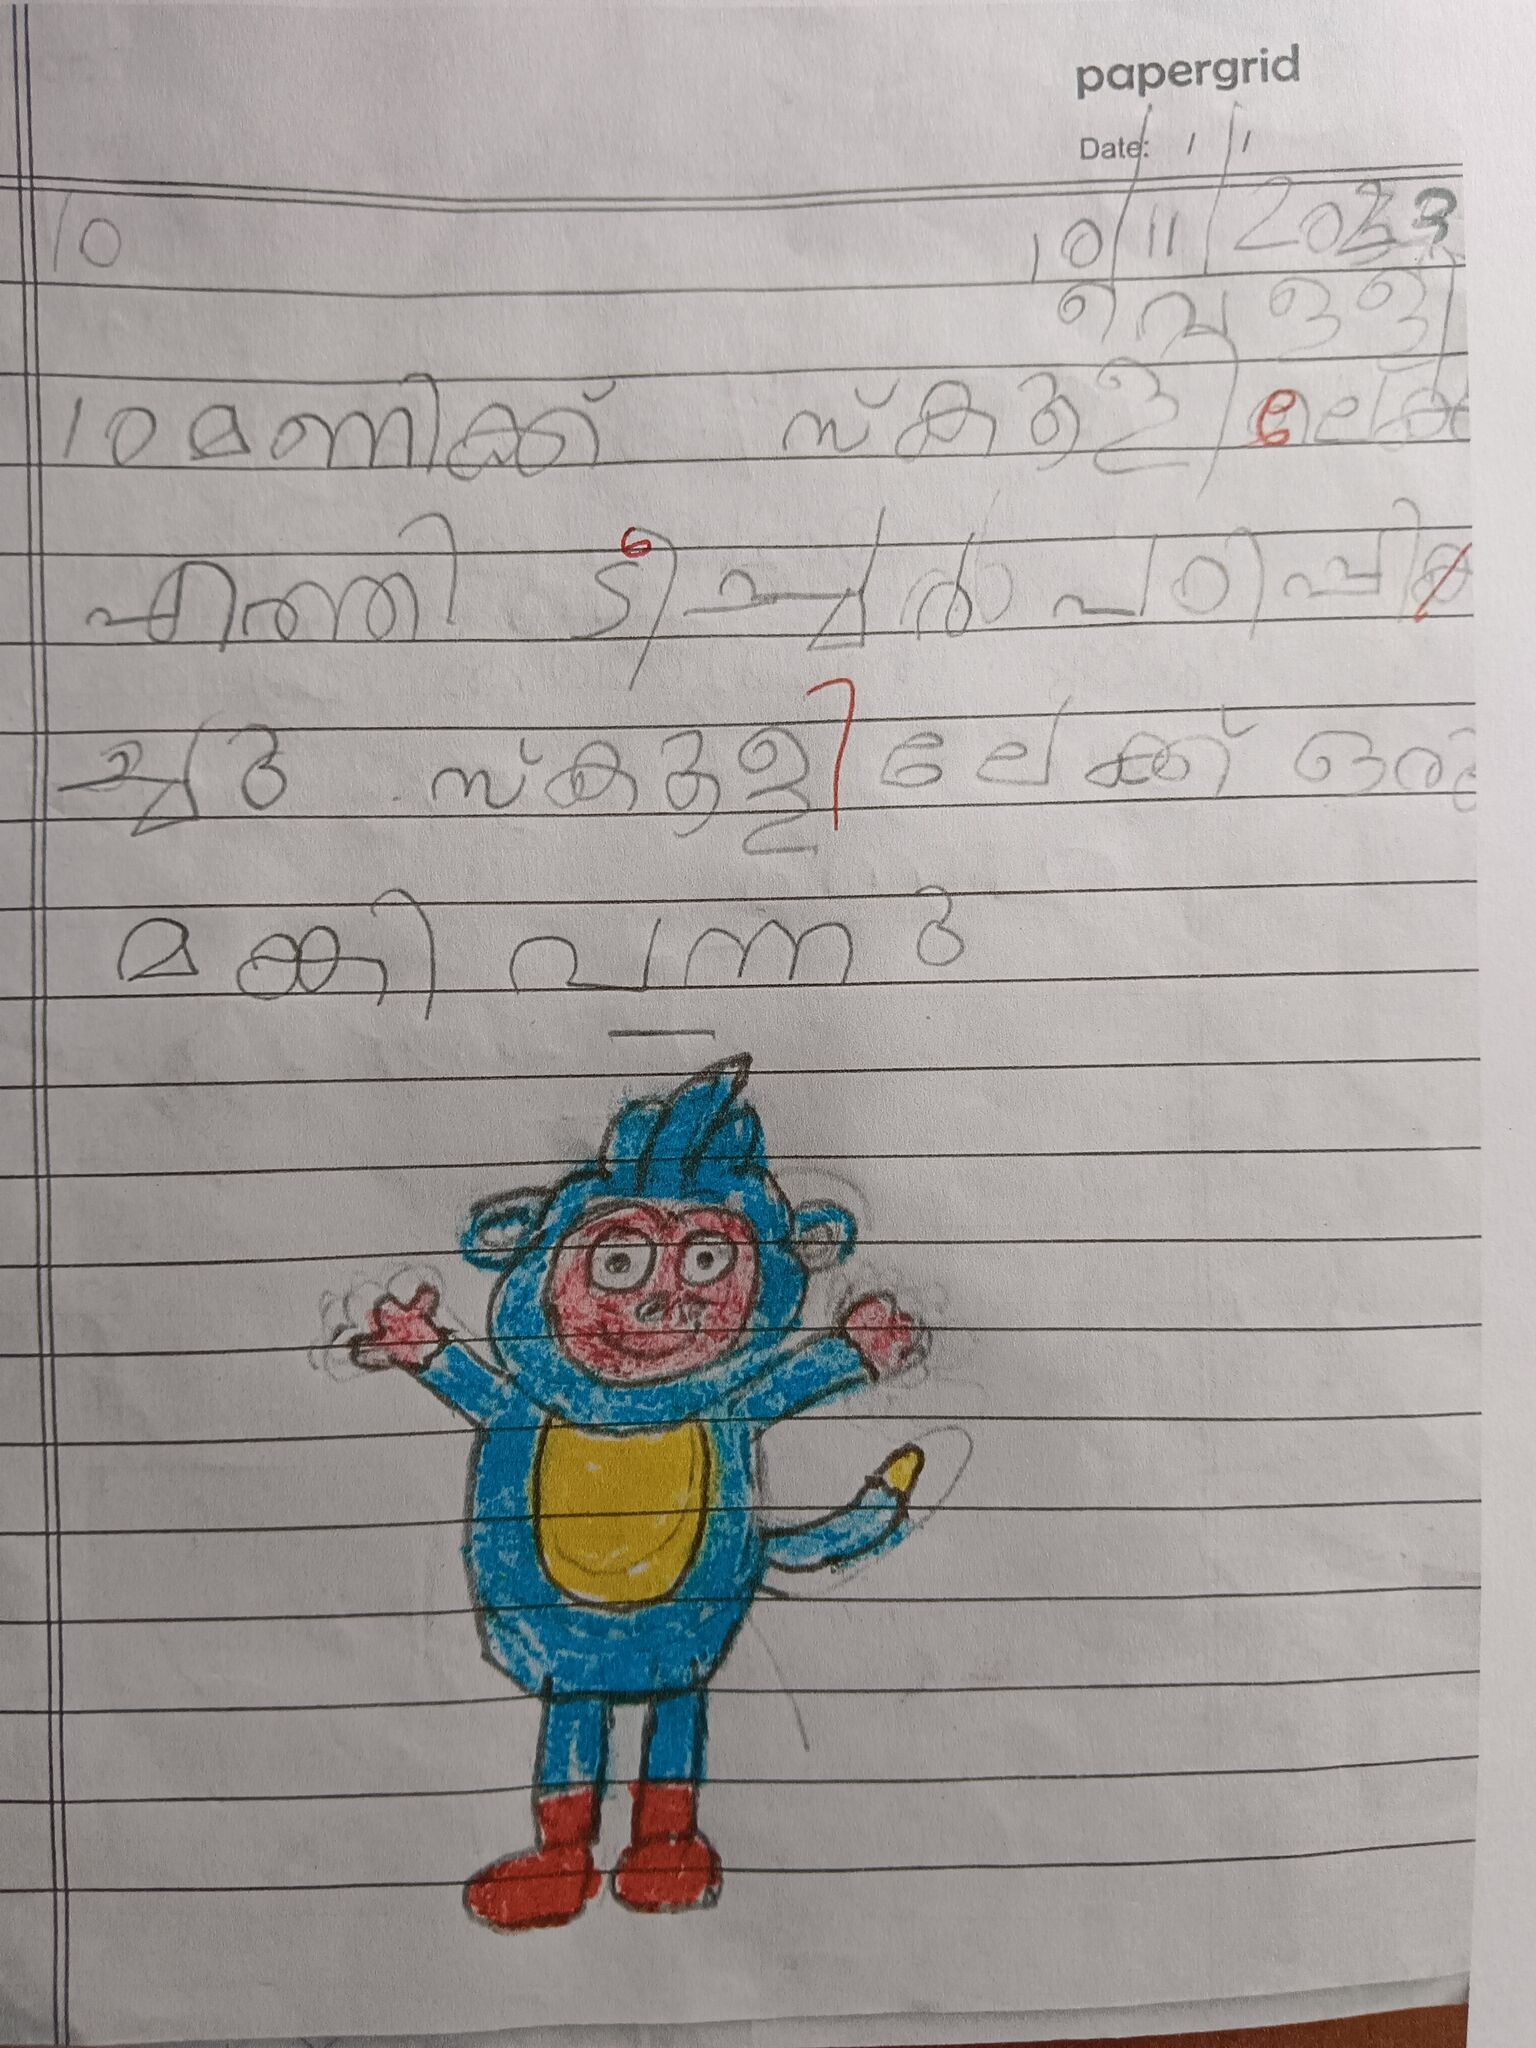 papergrid
Date: / /
10 10/11/2023
വെള്ളി
10 മണിക്ക് സ്കൂളിലേക്ക
എത്തി ടീച്ചർ പഠിപ്പിക
ച്ചു സ്കൂളിലേക്ക് ഒരു
മങ്കി വന്നു